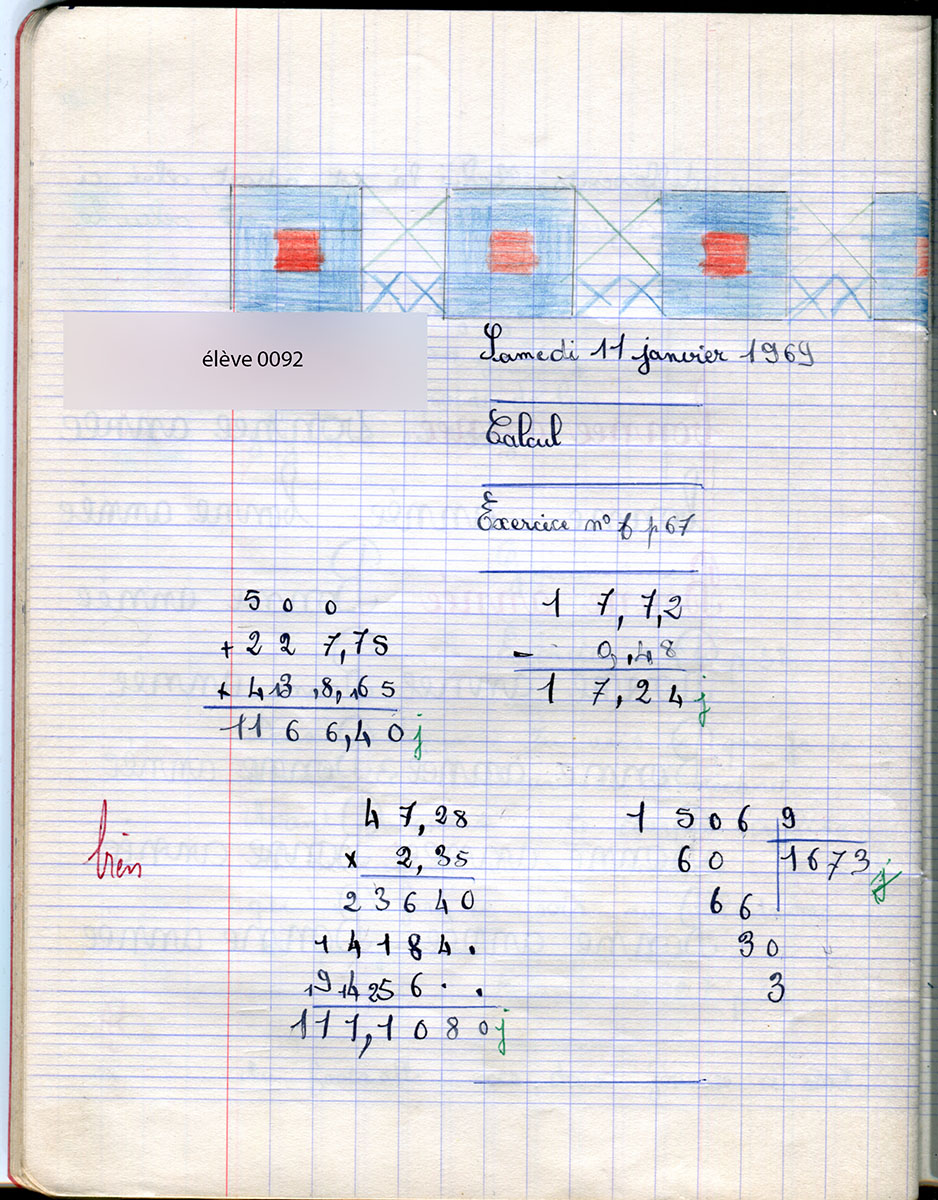 élève 0092
Samedi 11 janvier 1969
Calcul
Exercice n° 6 p 67
5 0 0
+ 2 2 7,75
+ 4 13 ,8,165
11 6 6,4 0 j
1 7,7,2
- 0,48
1 7,24 j
bien
4 7,28
x 2,35
2 3 6 4 0
1 4 1 8 4 .
19 14 25 6 . .
1 1 1,1 0 8 0 j
1 5 0 6 9
6 0 1673 j
6 6
3 0
3